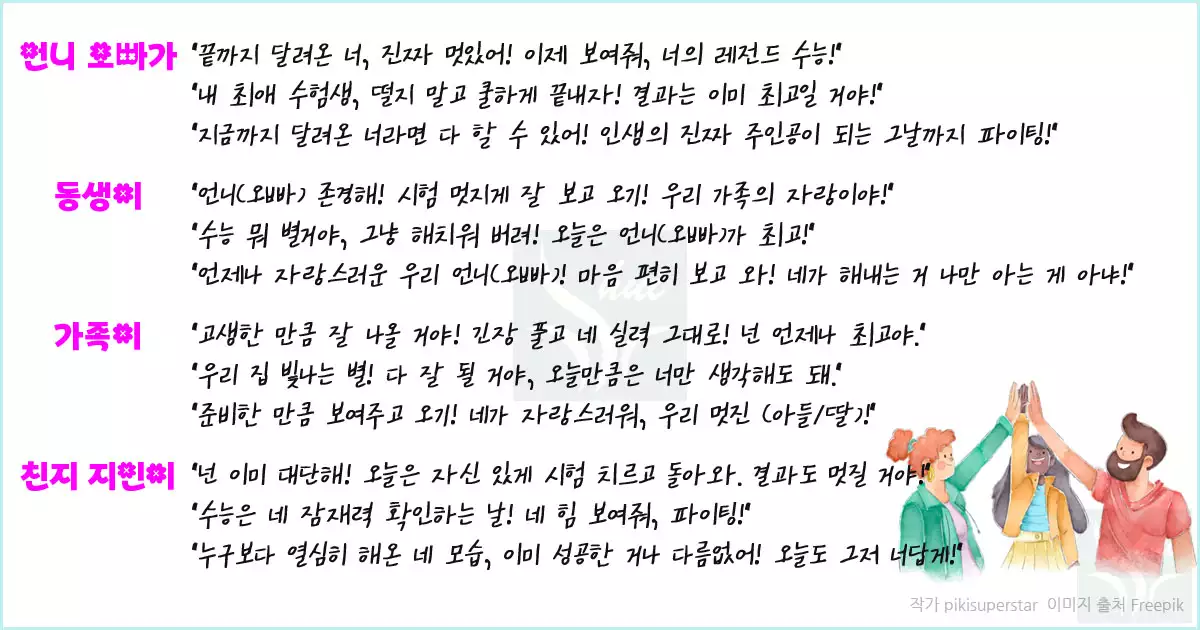 언니 오빠가 "끝까지 달려온 너, 진짜 멋있어! 이제 보여줘, 너의 레전드 수능!"
"내 최애 수험생, 떨지 말고 쿨하게 끝내자! 결과는 이미 최고일 거야!"
"지금까지 달려온 너라면 다 할 수 있어! 인생의 진짜 주인공이 되는 그날까지 파이팅!"
동생이 "언니(오빠) 존경해! 시험 멋지게 잘 보고 오기! 우리 가족의 자랑이야!"
"수능 뭐 별거야, 그냥 해치워 버려! 오늘은 언니(오빠)가 최고!"
"언제나 자랑스러운 우리 언니(오빠)! 마음 편히 보고 와! 네가 해내는 거 나만 아는 게 아냐!"
가족이 "고생한 만큼 잘 나올 거야! 긴장 풀고 네 실력 그대로! 넌 언제나 최고야."
"우리 집 빛나는 별! 다 잘 될 거야, 오늘만큼은 너만 생각해도 돼."
"준비한 만큼 보여주고 오기! 네가 자랑스러워, 우리 멋진 (아들/딸)!"
친지 지인이 "넌 이미 대단해! 오늘은 자신 있게 시험 치르고 돌아와. 결과도 멋질 거야!"
"수능은 네 잠재력 확인하는 날! 네 힘 보여줘, 파이팅!"
"누구보다 열심히 해온 네 모습, 이미 성공한 거나 다름없어! 오늘도 그저 너답게!"
작가 pikisuperstar 이미지 출처 Freepik